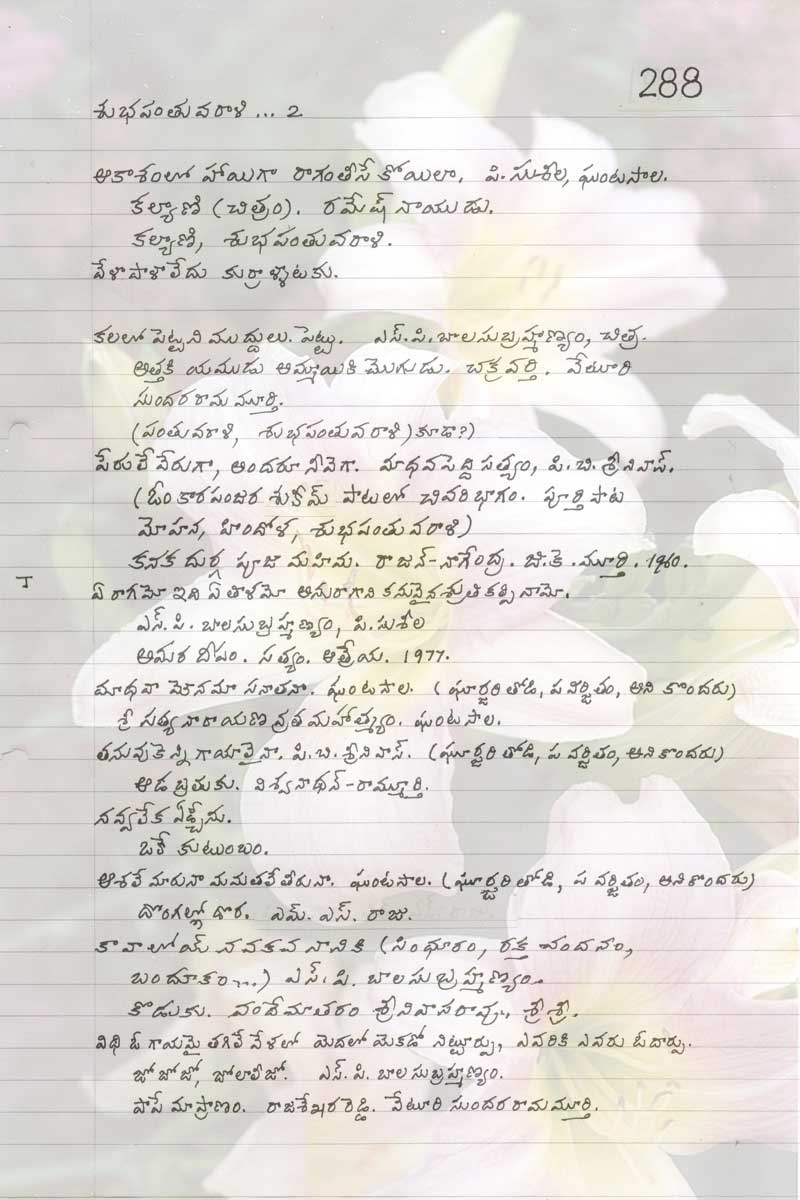 288
శుభపంతువరాళి ... 2
ఆకాశంలో హాయిగా రాగంతీసే కోయిలా. పి. సుశీల, ఘంటసాల.
కల్యాణి (చిత్రం). రమేష్ నాయుడు.
కల్యాణి, శుభపంతువరాళి.
వేళాపాళాలేదు కుర్రాళ్ళాటకు.
కలలో పెట్టని ముద్దులు. పెట్టు. ఎస్.పి. బాలసుబ్రహ్మణ్యం, చిత్ర.
అత్తకి యముడు అమ్మాయికి మొగుడు. చక్రవర్తి. వేటూరి
సుందరరామ మూర్తి.
(పంతువరాళి, శుభపంతువరాళి) కూడా?)
పేరులే వేరుగా, అందరూ నీవెగా. మాధవపెద్ది సత్యం, పి. బి. శ్రీనివాస్.
(ఓంకారపంజర శుకీమ్ పాటలో చివరి భాగం. పూర్తి పాట
మోహన, హిందోళ, శుభపంతువరాళి)
కనక దుర్గ పూజా మహిమ. రాజన్-నాగేంద్ర. జి. కె. మూర్తి. 1960.
ఏ రాగమో ఇది ఏ తాళమో అనురాగాని కనువైన శ్రుతి కలిపినామో.
ఎస్. పి. బాలసుబ్రహ్మణ్యం, పి. సుశీల
అమర దీపం. సత్యం. ఆత్రేయ. 1977.
మాధవా మౌనమా సనాతనా. ఘంటసాల. (ఘూర్జరి తోడి, ప వర్జితం, అని కొందరు)
శ్రీ సత్యనారాయణ వ్రతమహాత్మ్యం. ఘంటసాల.
తనువుకెన్ని గాయాలైనా. పి. బి. శ్రీనివాస్. (ఘూర్జరి తోడి, ప వర్జితం, అని కొందరు)
ఆడ బ్రతుకు. విశ్వనాథన్-రామ్మూర్తి.
నవ్వలేక ఏడ్చేను.
ఒకే కుటుంబం.
ఆశలే మారునా మమతలే తీరునా. ఘంటసాల. (ఘూర్జరి తోడి, ప వర్జితం, అని కొందరు)
దొంగల్లో దొర. ఎమ్. ఎస్. రాజు.
కావాలోయ్ నవకవనానికి (సింధూరం, రక్త చందనం,
బందూకం...) ఎస్. పి. బాలసుబ్రహ్మణ్యం.
కొడుకు. వందేమాతరం శ్రీనివాసరావు, శ్రీశ్రీ.
విధి ఓ గాయమై తగిలే వేళలో మెదలో నిట్టూర్పు, ఎవరికి ఎవరు ఓదార్పు.
జో జో జో, జోలాలీజో. ఎస్. పి. బాలసుబ్రహ్మణ్యం.
పాపే మాప్రాణం. రాజశేఖర రెడ్డి. వేటూరి సుందరరామమూర్తి.